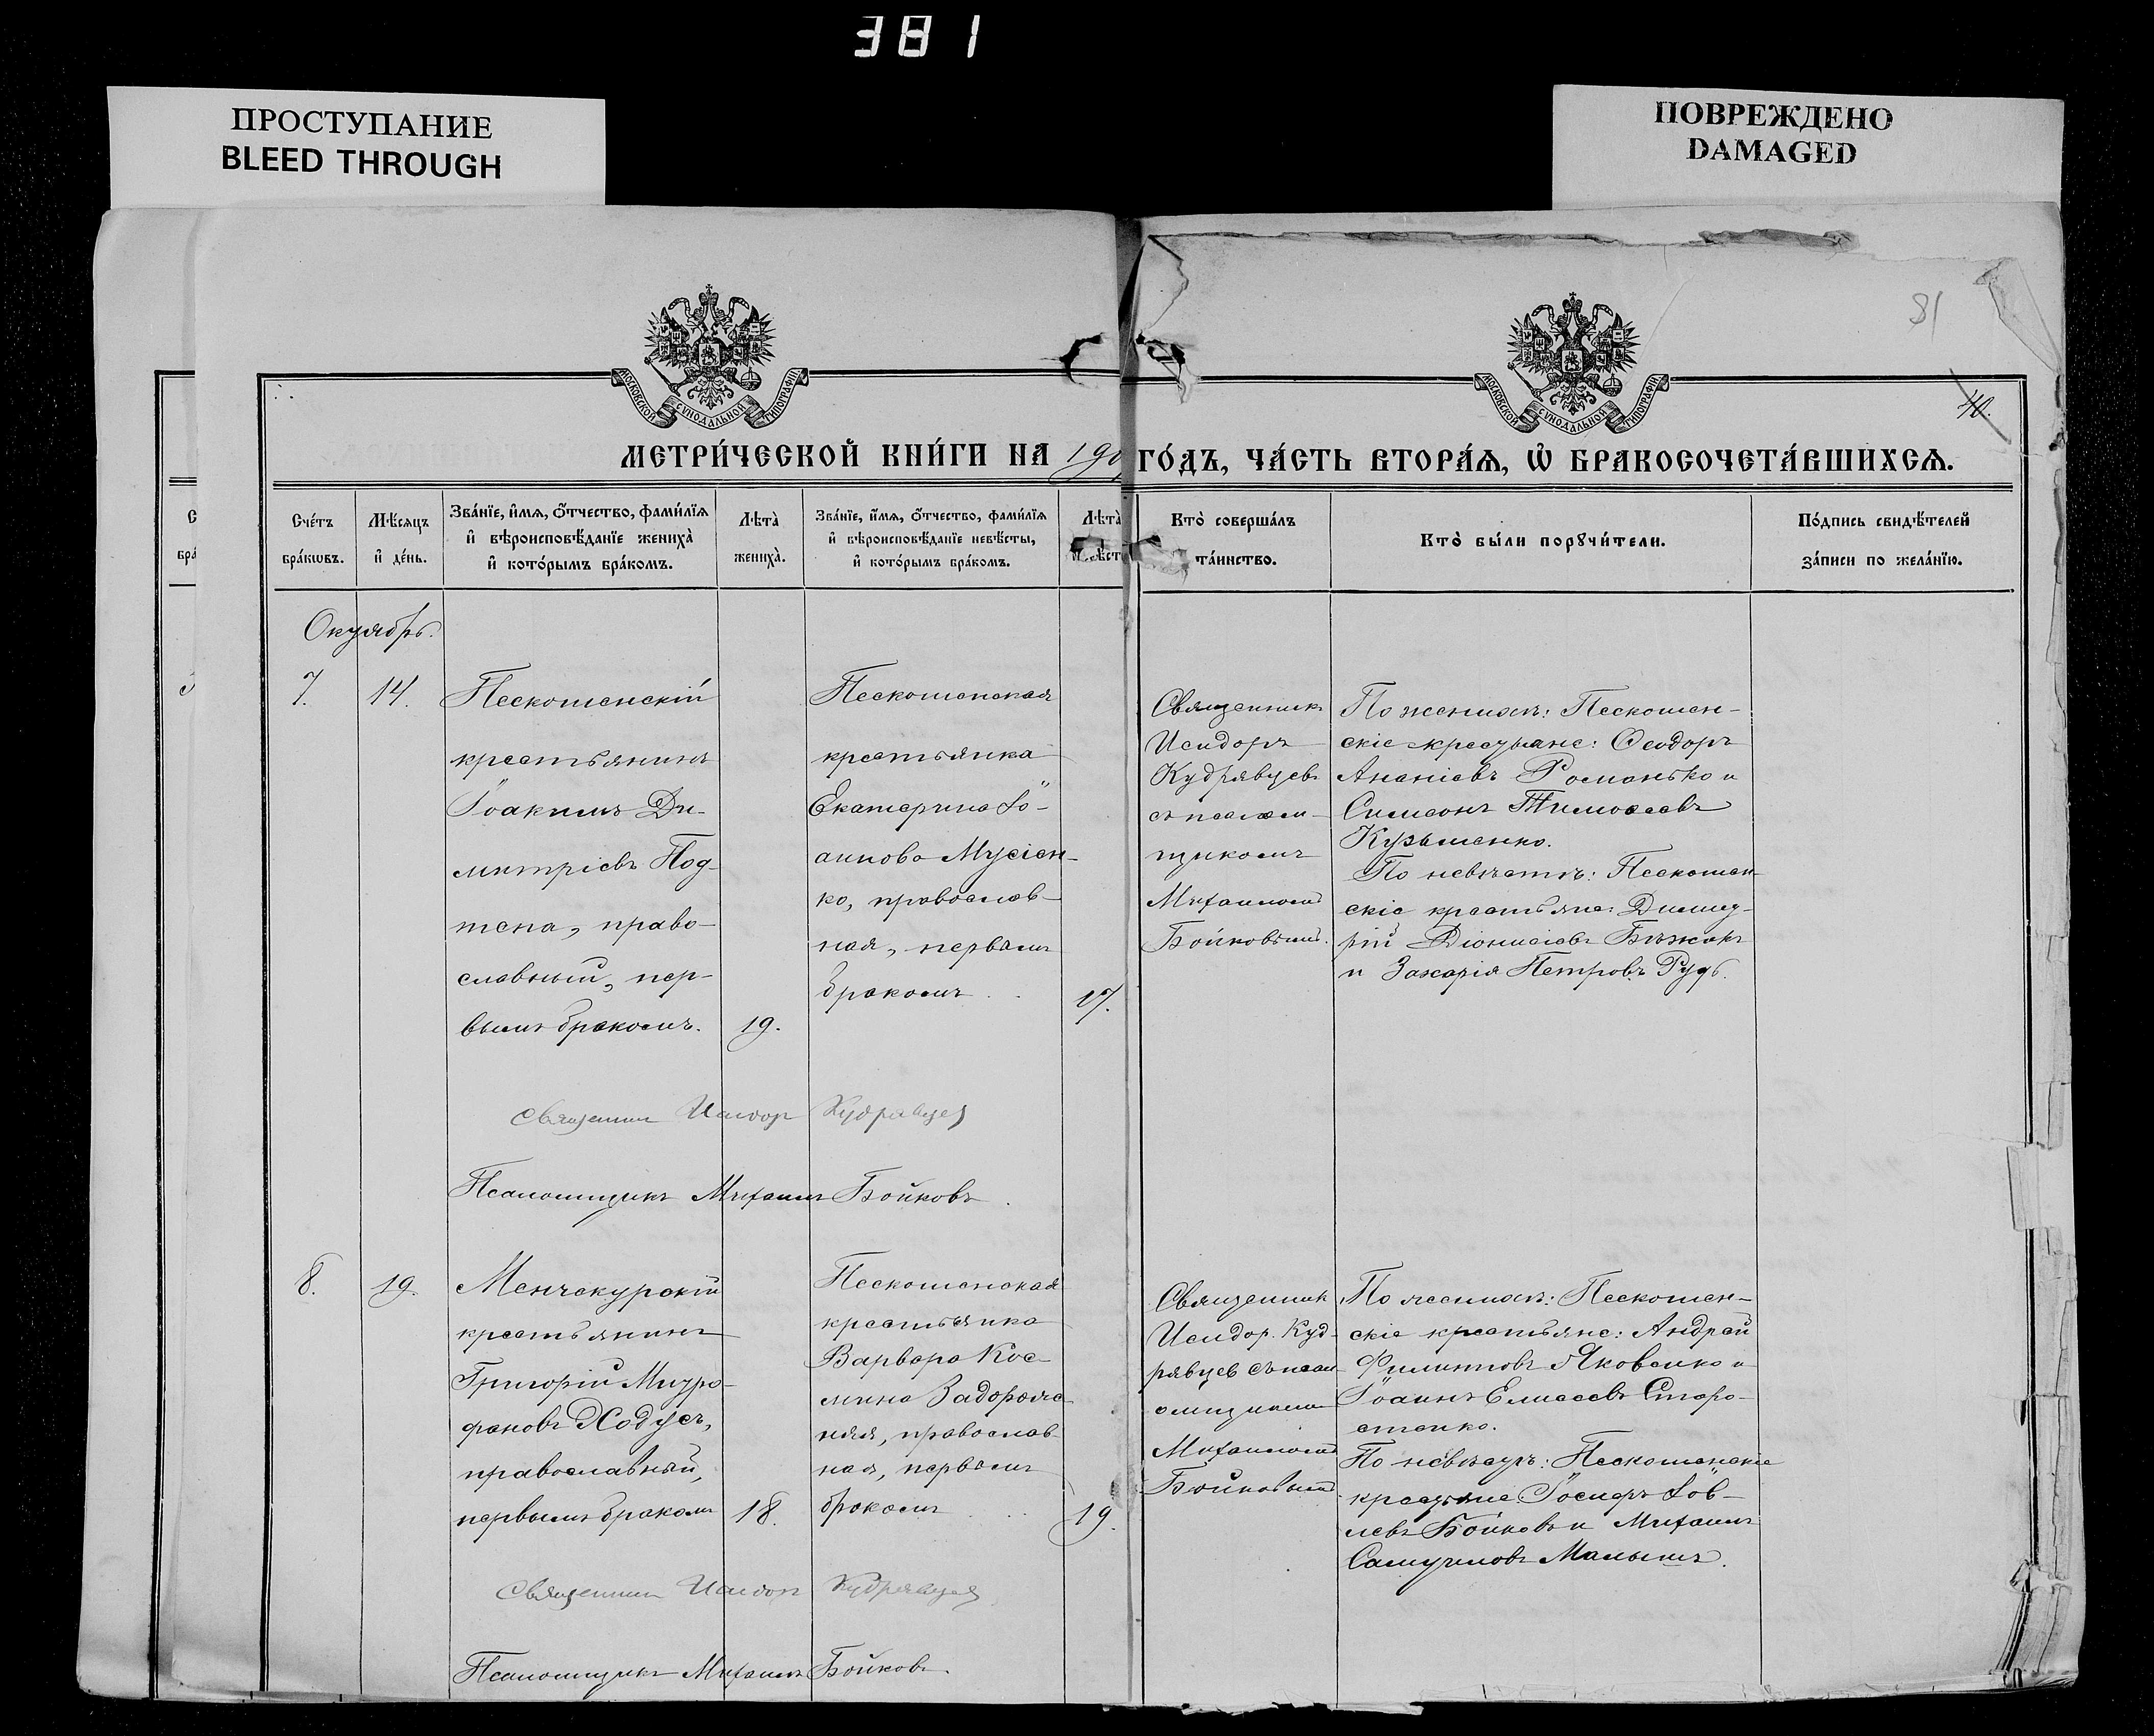 381
ПРОСТУПАНИЕ
BLEED THROUGH
ПОВРЕЖДЕНО
DAMAGED
81
40.
МОСКОВСКОЙ СѴНОДАЛЬНОЙ ТИПОГРАФІИ
МОСКОВСКОЙ СѴНОДАЛЬНОЙ ТИПОГРАФІИ
МЕТРИ́ЧЕСКОЙ КНИ́ГИ НА 190 ГО́ДЪ, ЧА́СТЬ ВТОРА́Ѧ, Ѽ БРАКОСОЧЕТА́ВШИХСѦ.
Сче́тъ
бра́кѡвъ.
Мѣ́сѧцъ
и҆ де́нь.
Зва́нїе, и҆́мѧ, ѻ҆́тчество, фами́лїѧ
и҆ вѣроисповѣ́данїе жениха̀
и҆ кото́рымъ бра́комъ.
Лѣта̀
жениха̀.
Зва́нїе, и҆́мѧ, ѻ҆́тчество, фами́лїѧ
и҆ вѣроисповѣ́данїе невѣ́сты,
и҆ кото́рымъ бра́комъ.
Лѣта̀
Кто̀ соверша́лъ
та́инство.
Кто̀ бы́ли порꙋчи́тели.
По́дпись свидѣ́телей
за́писи по жела́нїю.
Октябрь.
7.
14.
Пескошенскій
крестьянинъ
Іоакимъ Ди-
митріевъ Под-
тепа, право-
славный, пер-
вымъ бракомъ.
19.
Пескошенская
крестьянка
Екатерина Іо-
аннова Мусіен-
ко, православ-
ная, первымъ
бракомъ
17.
Священникъ
Исидоръ
Кудрявцевъ
съ псалом-
щикомъ
Михаиломъ
Бойковымъ.
По женихѣ: Пескошен-
скіе крестьяне: Ѳеодоръ
Ананіевъ Романько и
Симеонъ Тимоѳеевъ
Кузьменко.
По невѣстѣ: Пескошен-
скіе крестьяне: Димит-
рій Діонисіевъ Бѣжокъ
и Захарія Петровъ Рудь.
Священникъ Исидоръ Кудрявцевъ
Псаломщикъ Михаилъ Бойковъ.
8.
19.
Менчекурскій
крестьянинъ
Григорій Митро-
фановъ Ходусъ,
православный,
первымъ бракомъ
18.
Пескошенская
крестьянка
Варвара Кос-
мина Задорож-
няя, православ-
ная, первымъ
бракомъ
19.
Священникъ
Исидор. Куд-
рявцев съ псал-
омщикомъ
Михаиломъ
Бойковымъ
По женихѣ: Пескошен-
скіе крестьяне: Андрей
Филипповъ Яковенко и
Іоаннъ Елисеевъ Старо-
стенко.
По невѣстѣ: Пескошенскіе
крестьяне Іосифъ Іов-
левъ Бойковъ и Михаилъ
Самуиловъ Малышъ.
Священникъ Исидоръ Кудрявцевъ
Псаломщикъ Михаилъ Бойковъ.